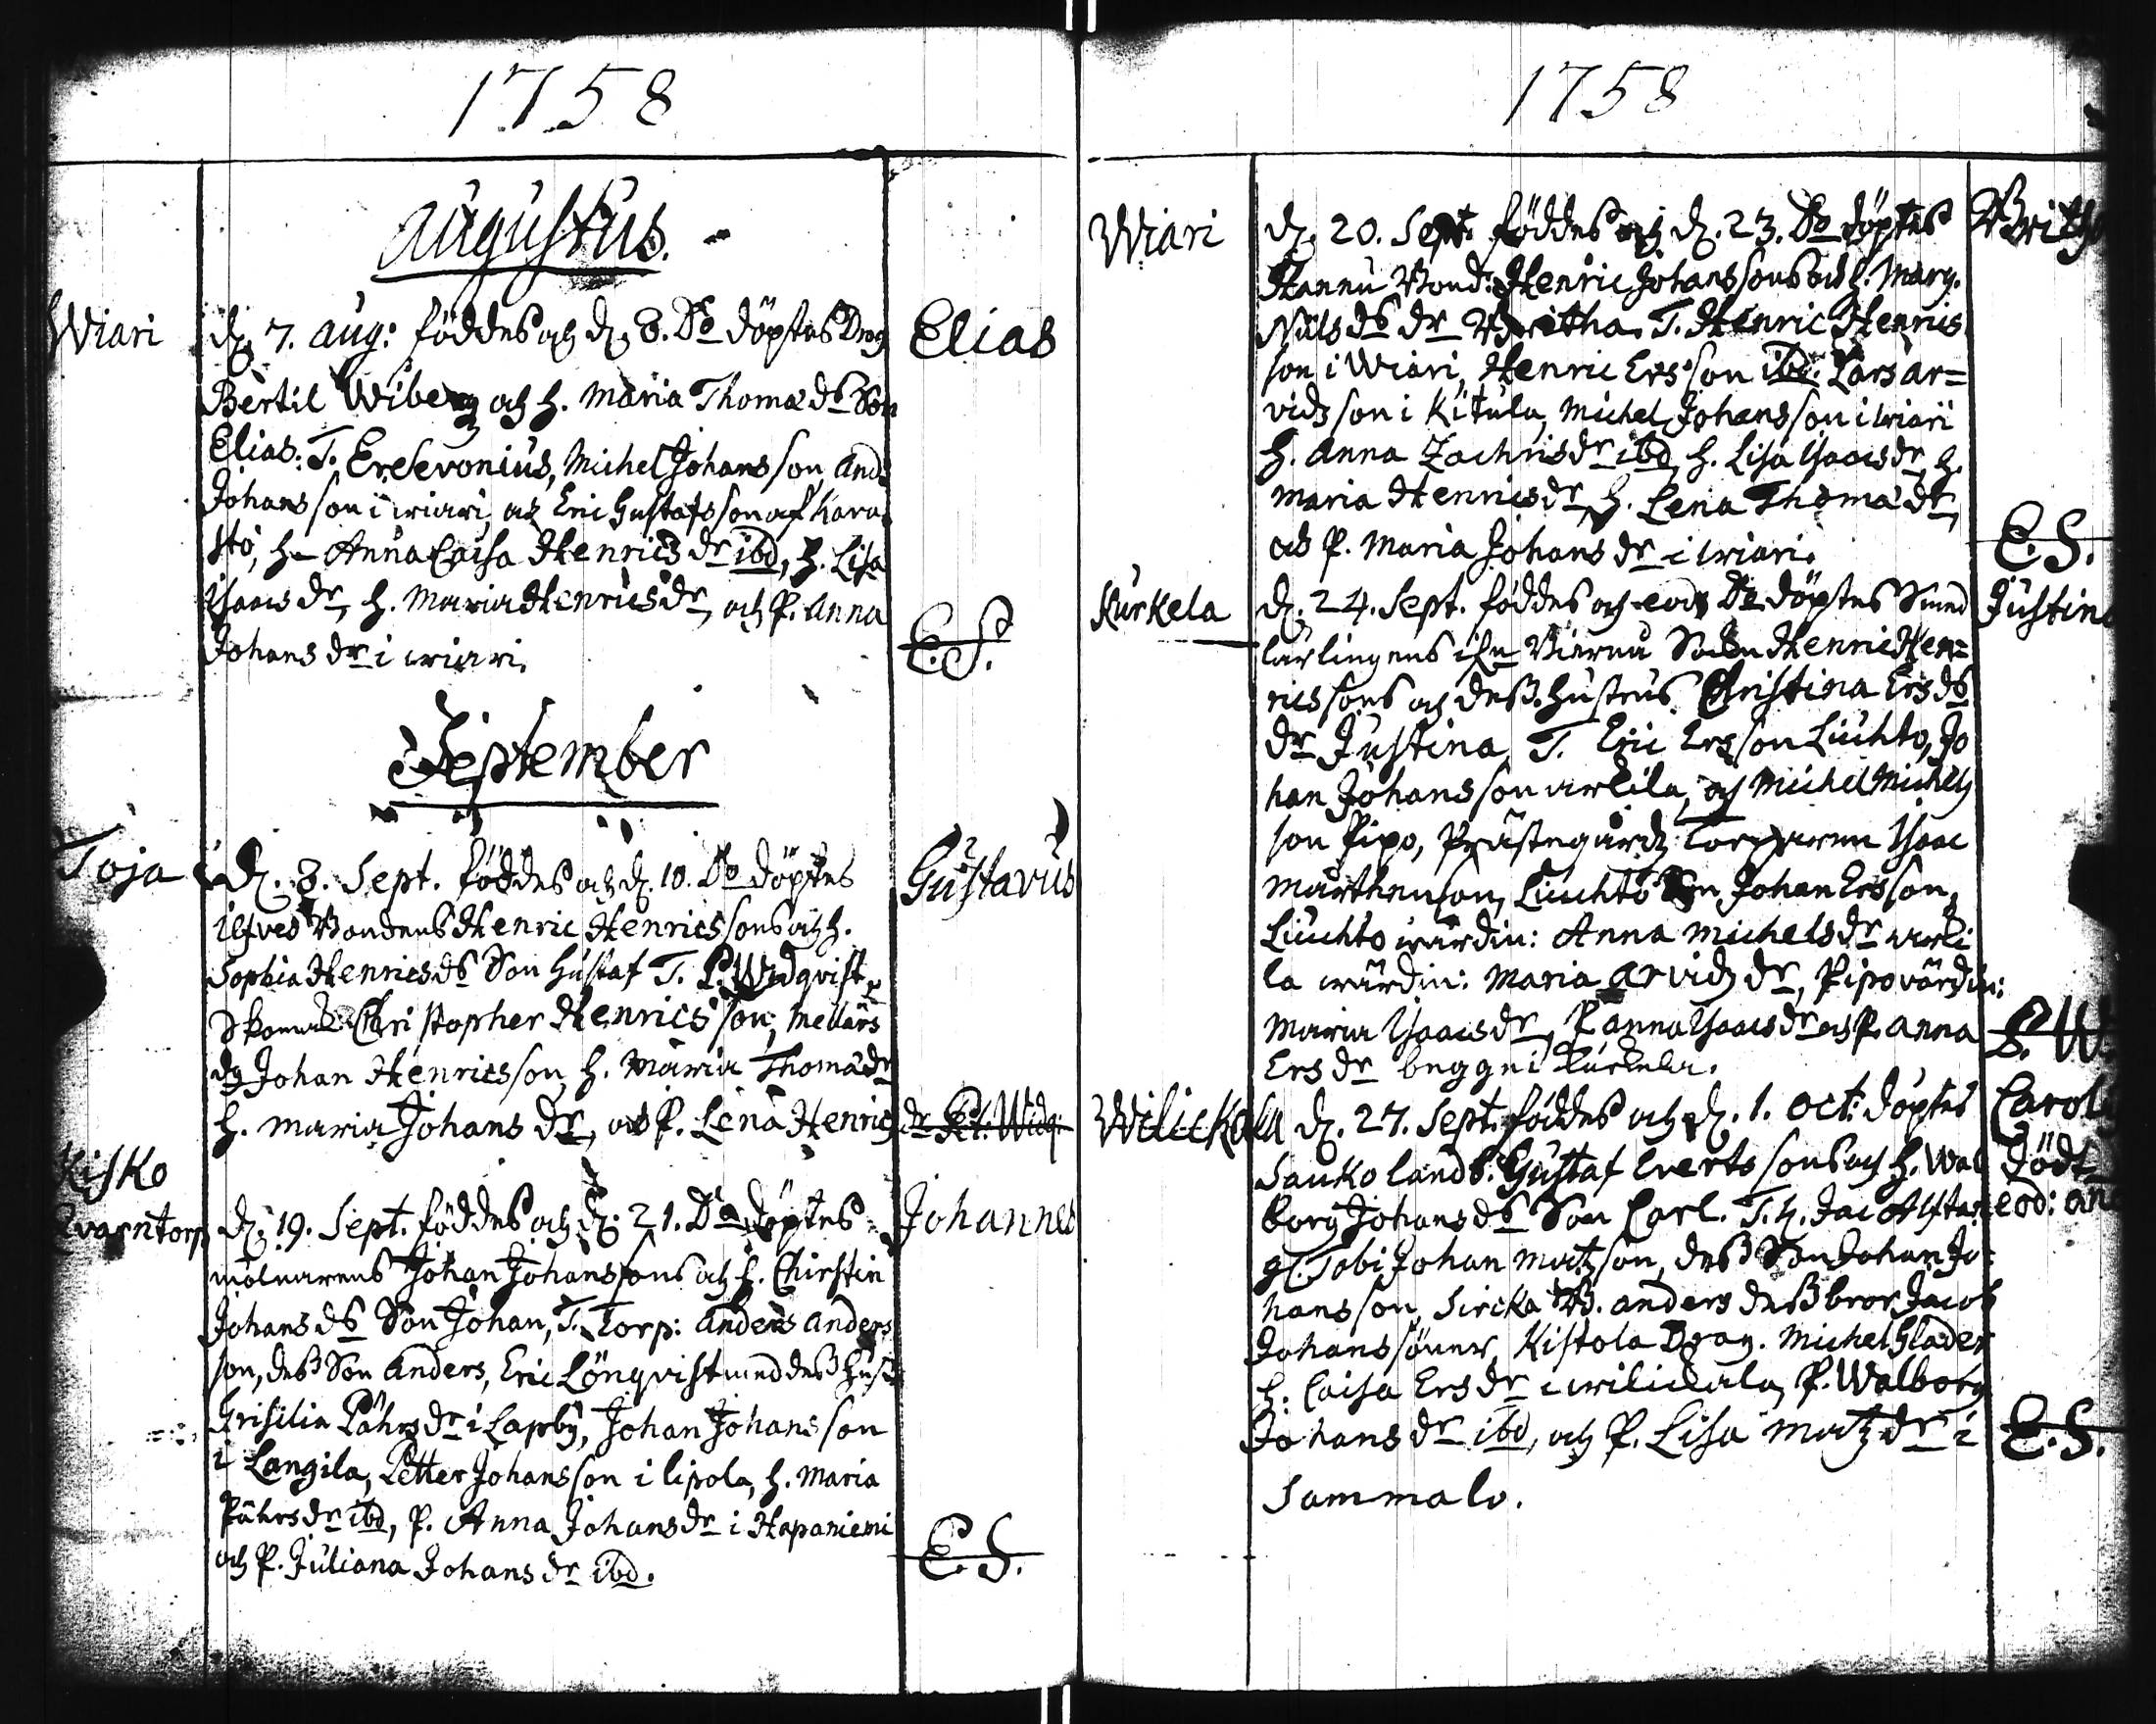 1758
Augustus.
Wiari
d. 7. Aug: föddes och d. 8. Do döptes Drag
Elias
Bertil Wiberg och h. Maria Thomæ ds Son
Elias: T. Er. Sevonius, Michel Johansson, And:
Johansson i Wiari, och Eric Gustafsson af Kara-
stö, h. Anna Caisa Henrics dr ibd, h. Lisa
Isaacs dr, h. Maria Henrics dr, och P. Anna
Johans dr i Wiari.
E.S.
September
Toja
d. 8. Sept. föddes och d. 10. Do döptes
Gustavus
Ilfves Bondens Henric Henricssons och h.
Sophia Henrics ds Son Gustaf T. P. Widqvist,
Skomak. Christopher Henricsson, Mellärs
dg Johan Henricsson, h. Maria Thomæ dr
h. Maria Johans dr, och P. Lena Henrics dr Pet: Widq:
Kisko
Qvarntorp
d. 19. Sept. föddes och d. 21. Do döptes
Johannes
mölnarens Johan Johanssons och h. Chirstin
Johans ds Son Johan, T. Torp: Anders Anders
son, dess Son Anders, Eric Lönqvist med dess hust
Grisilia Påhrs dr i Lapby, Johan Johansson
i Langila, Petter Johansson i Lipola, h. Maria
Påhrs dr ibd, P. Anna Johans dr i Hapaniemi
och P. Juliana Johans dr ibd.
E.S.
1758
Wiari
d. 20. Sept. föddes och d. 23. Do döptes
Britha
Hannu Bond: Henric Johanssons och h. Marg.
Nils ds dr Britha. T. Henric Henrics
son i Wiari, Henric Ersson ibd. Lars Ar=
vidsson i Kitula, Michel Johansson i Wiari
h. Anna Zachris dr ibd, h. Lisa Isaacs dr, h.
Maria Henrics dr, h. Lena Thomæ dr,
och P. Maria Johans dr i Wiari.
E.S.
Kurkela
d. 24. Sept. föddes och eod. Do döptes Smed
Justina
lärlingens Henric Hen=
ricssons och dess hustrus Christina Ers ds
dr Justina, T. Eric Ersson Liuhto, Jo
han Johansson Arkila, och Michel Michels
son Pipo, Prästegårds Torparen Isaac
Mårthensson, Liuchto Son Johan Ersson,
Liuchto wärdin: Anna Michels dr Arki
la wärdin: Maria Arvids dr, Pipo värdin:
Maria Isaacs dr, P. Anna Isaacs dr och P. Anna
P. W.
Ers dr begge i Kurkela.
Wilickala
d. 27. Sept. föddes och d. 1. Oct: döptes
Carol
Sauko landb. Gustaf Evertssons och h. Wal
Död
borg Johans ds Son Carl. T. h. Jac Alftan
eod: an
gl. Tobi Johan Matsson, dess Son Johan Jo=
hansson, Sircka B. Anders dess bror Jacob
Johanssöner, Kistola Drag. Michel Glader
h. Caisa Ers dr i Wilickala, P. Walborg
Johans dr ibd, och P. Lisa Mats dr i
E.S.
Sammalo.